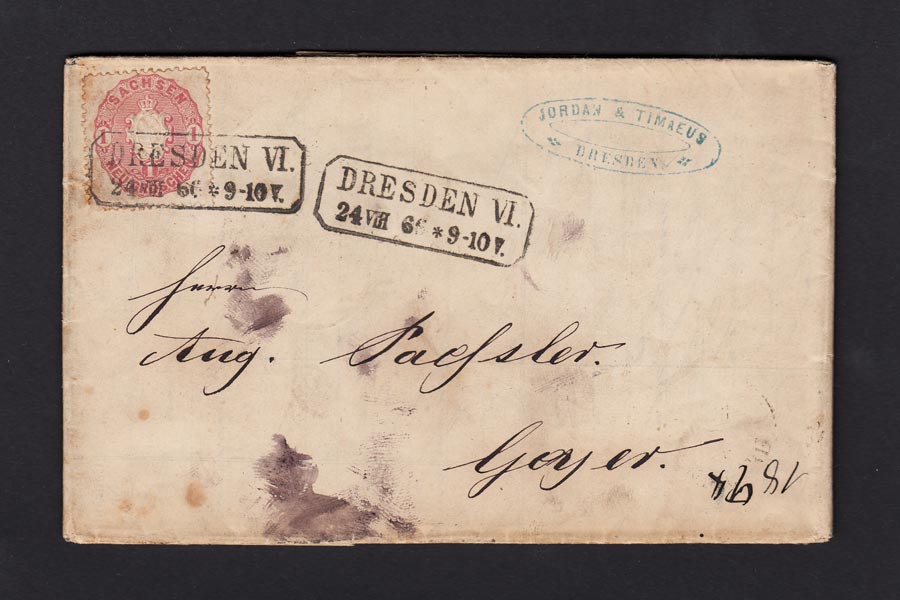 SACHSEN
1 1
DRESDEN VI.
24 VIII 66 * 9-10 V.
DRESDEN VI.
24 VIII 66 * 9-10 V.
JORDAN & TIMAEUS
DRESDEN
Herrn
Aug. Pachsler.
Geyer.